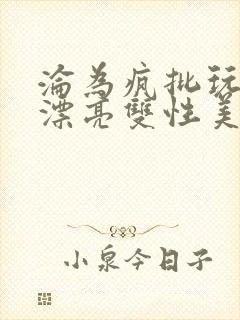 淪為瘋批玩
漂亮雙性美
小泉今日子